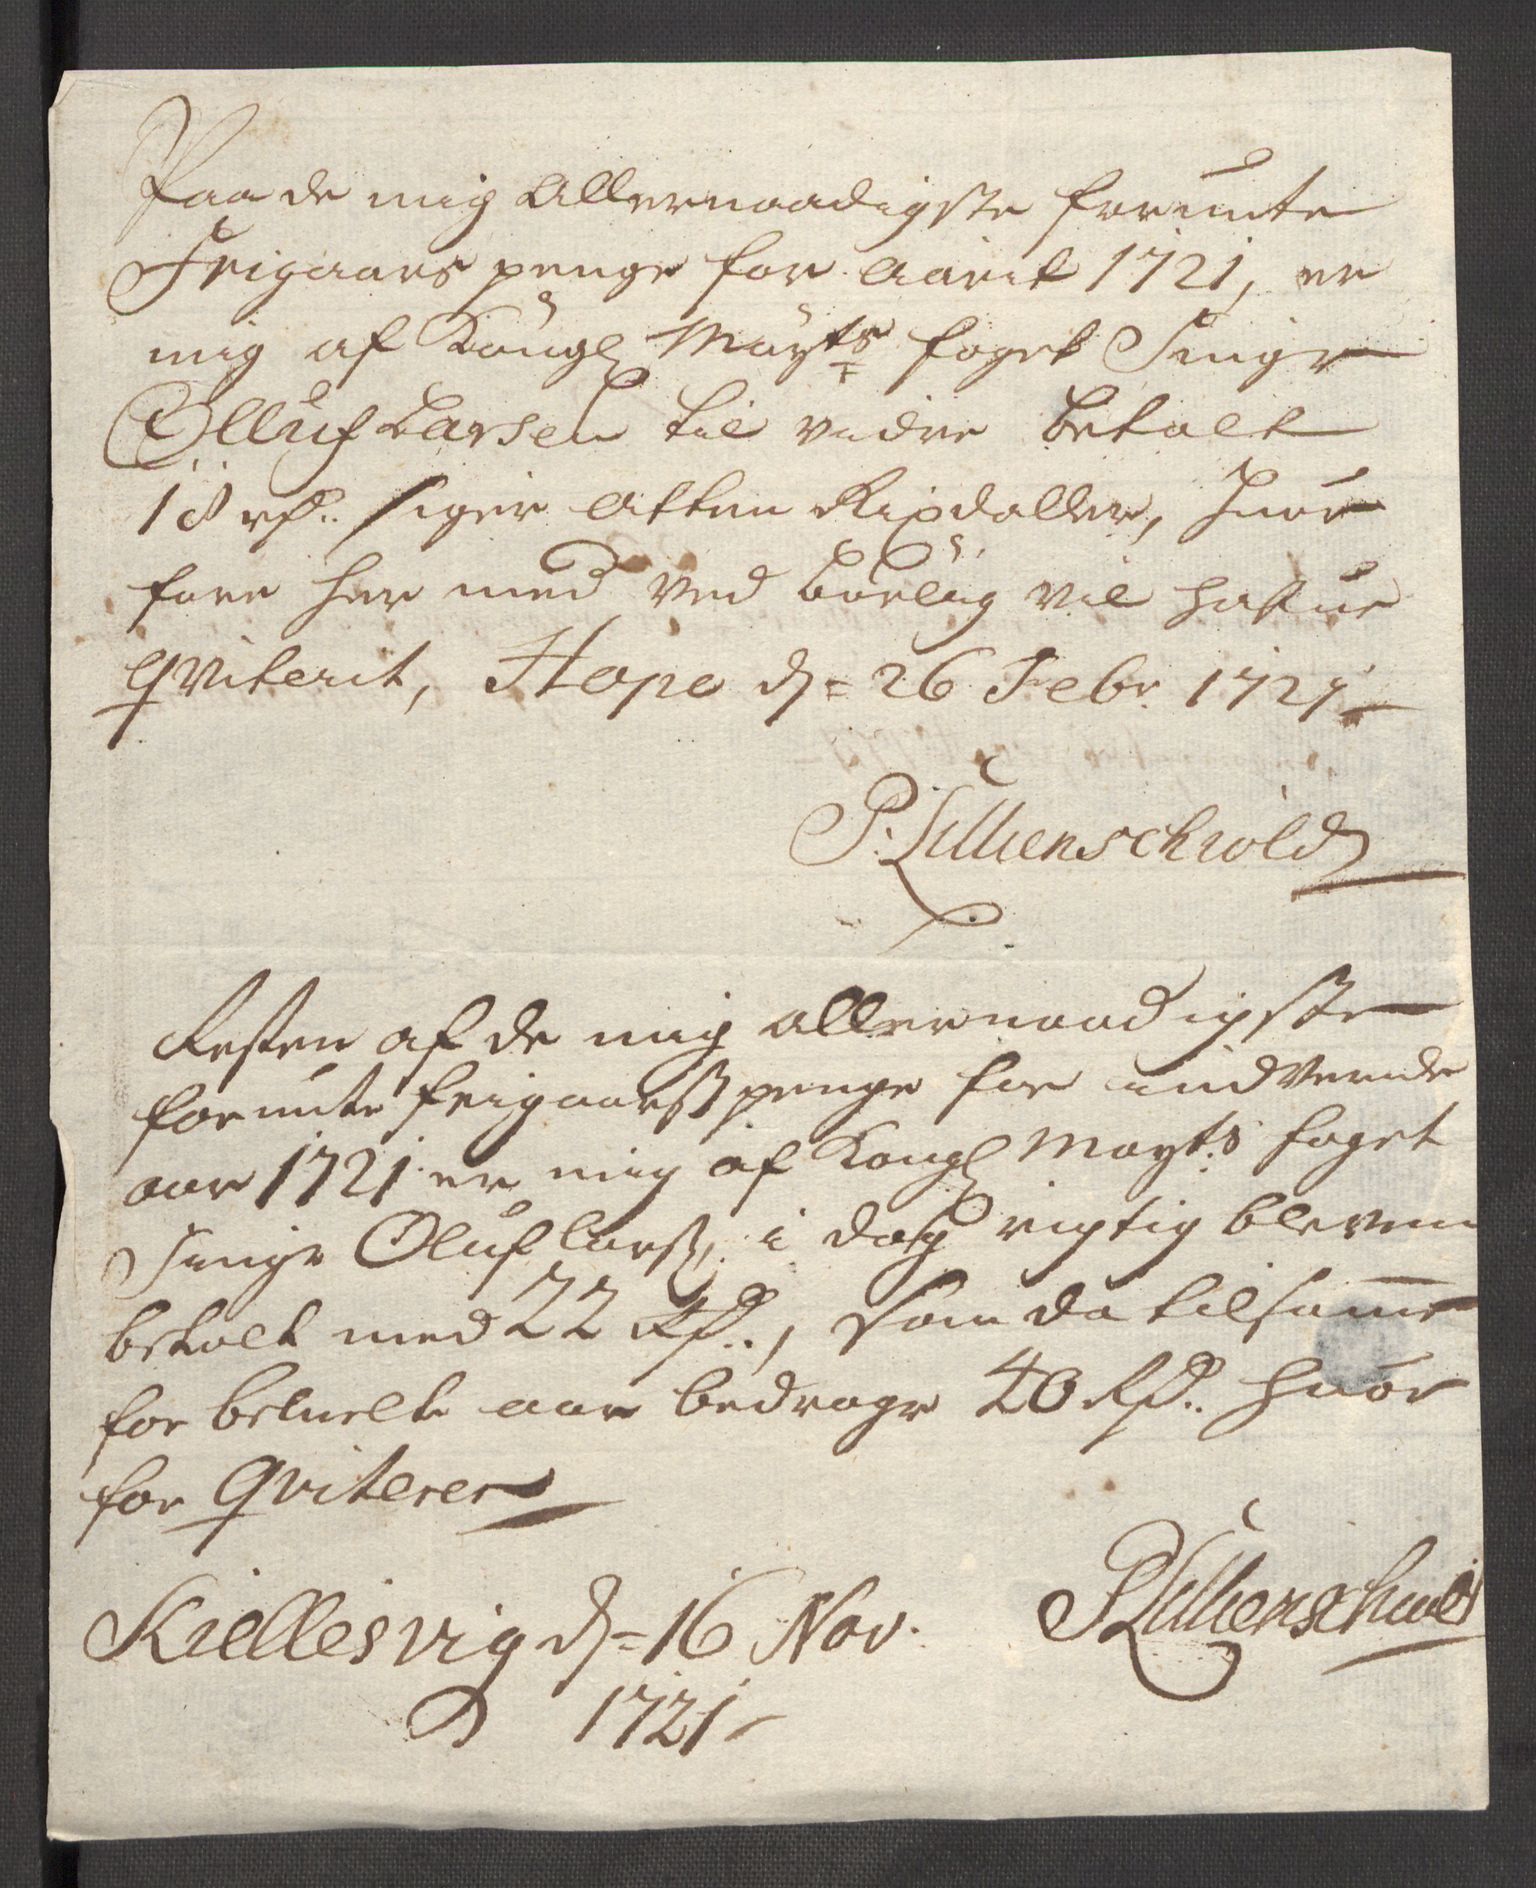 Paa de mig allernaadigste forunte
Frigaars penge for aarit 1721, er
mig af Kongl Mayts foget Seigr
Olluf Larsen til videre betalt
18 rd. siger atten Rixdaller, huor
fore her med ved børlig vil hafue
qviterit, Hope d= 26 Febr 1721
P. Lillienschiold
Resten af de mig allernaadigste
forunte frigaarsspenge for indverende
aar 1721 er mig af Kongl Mayts foget
Seigr Oluf Larss, i dag rigtig bleven
betalt med 22 Rd., som da tilsame
for bemelte aar bedrager 40 Rd. huor
for qviterer
Kiellesvig d= 16 Nov.
1721
P Lillienschiold